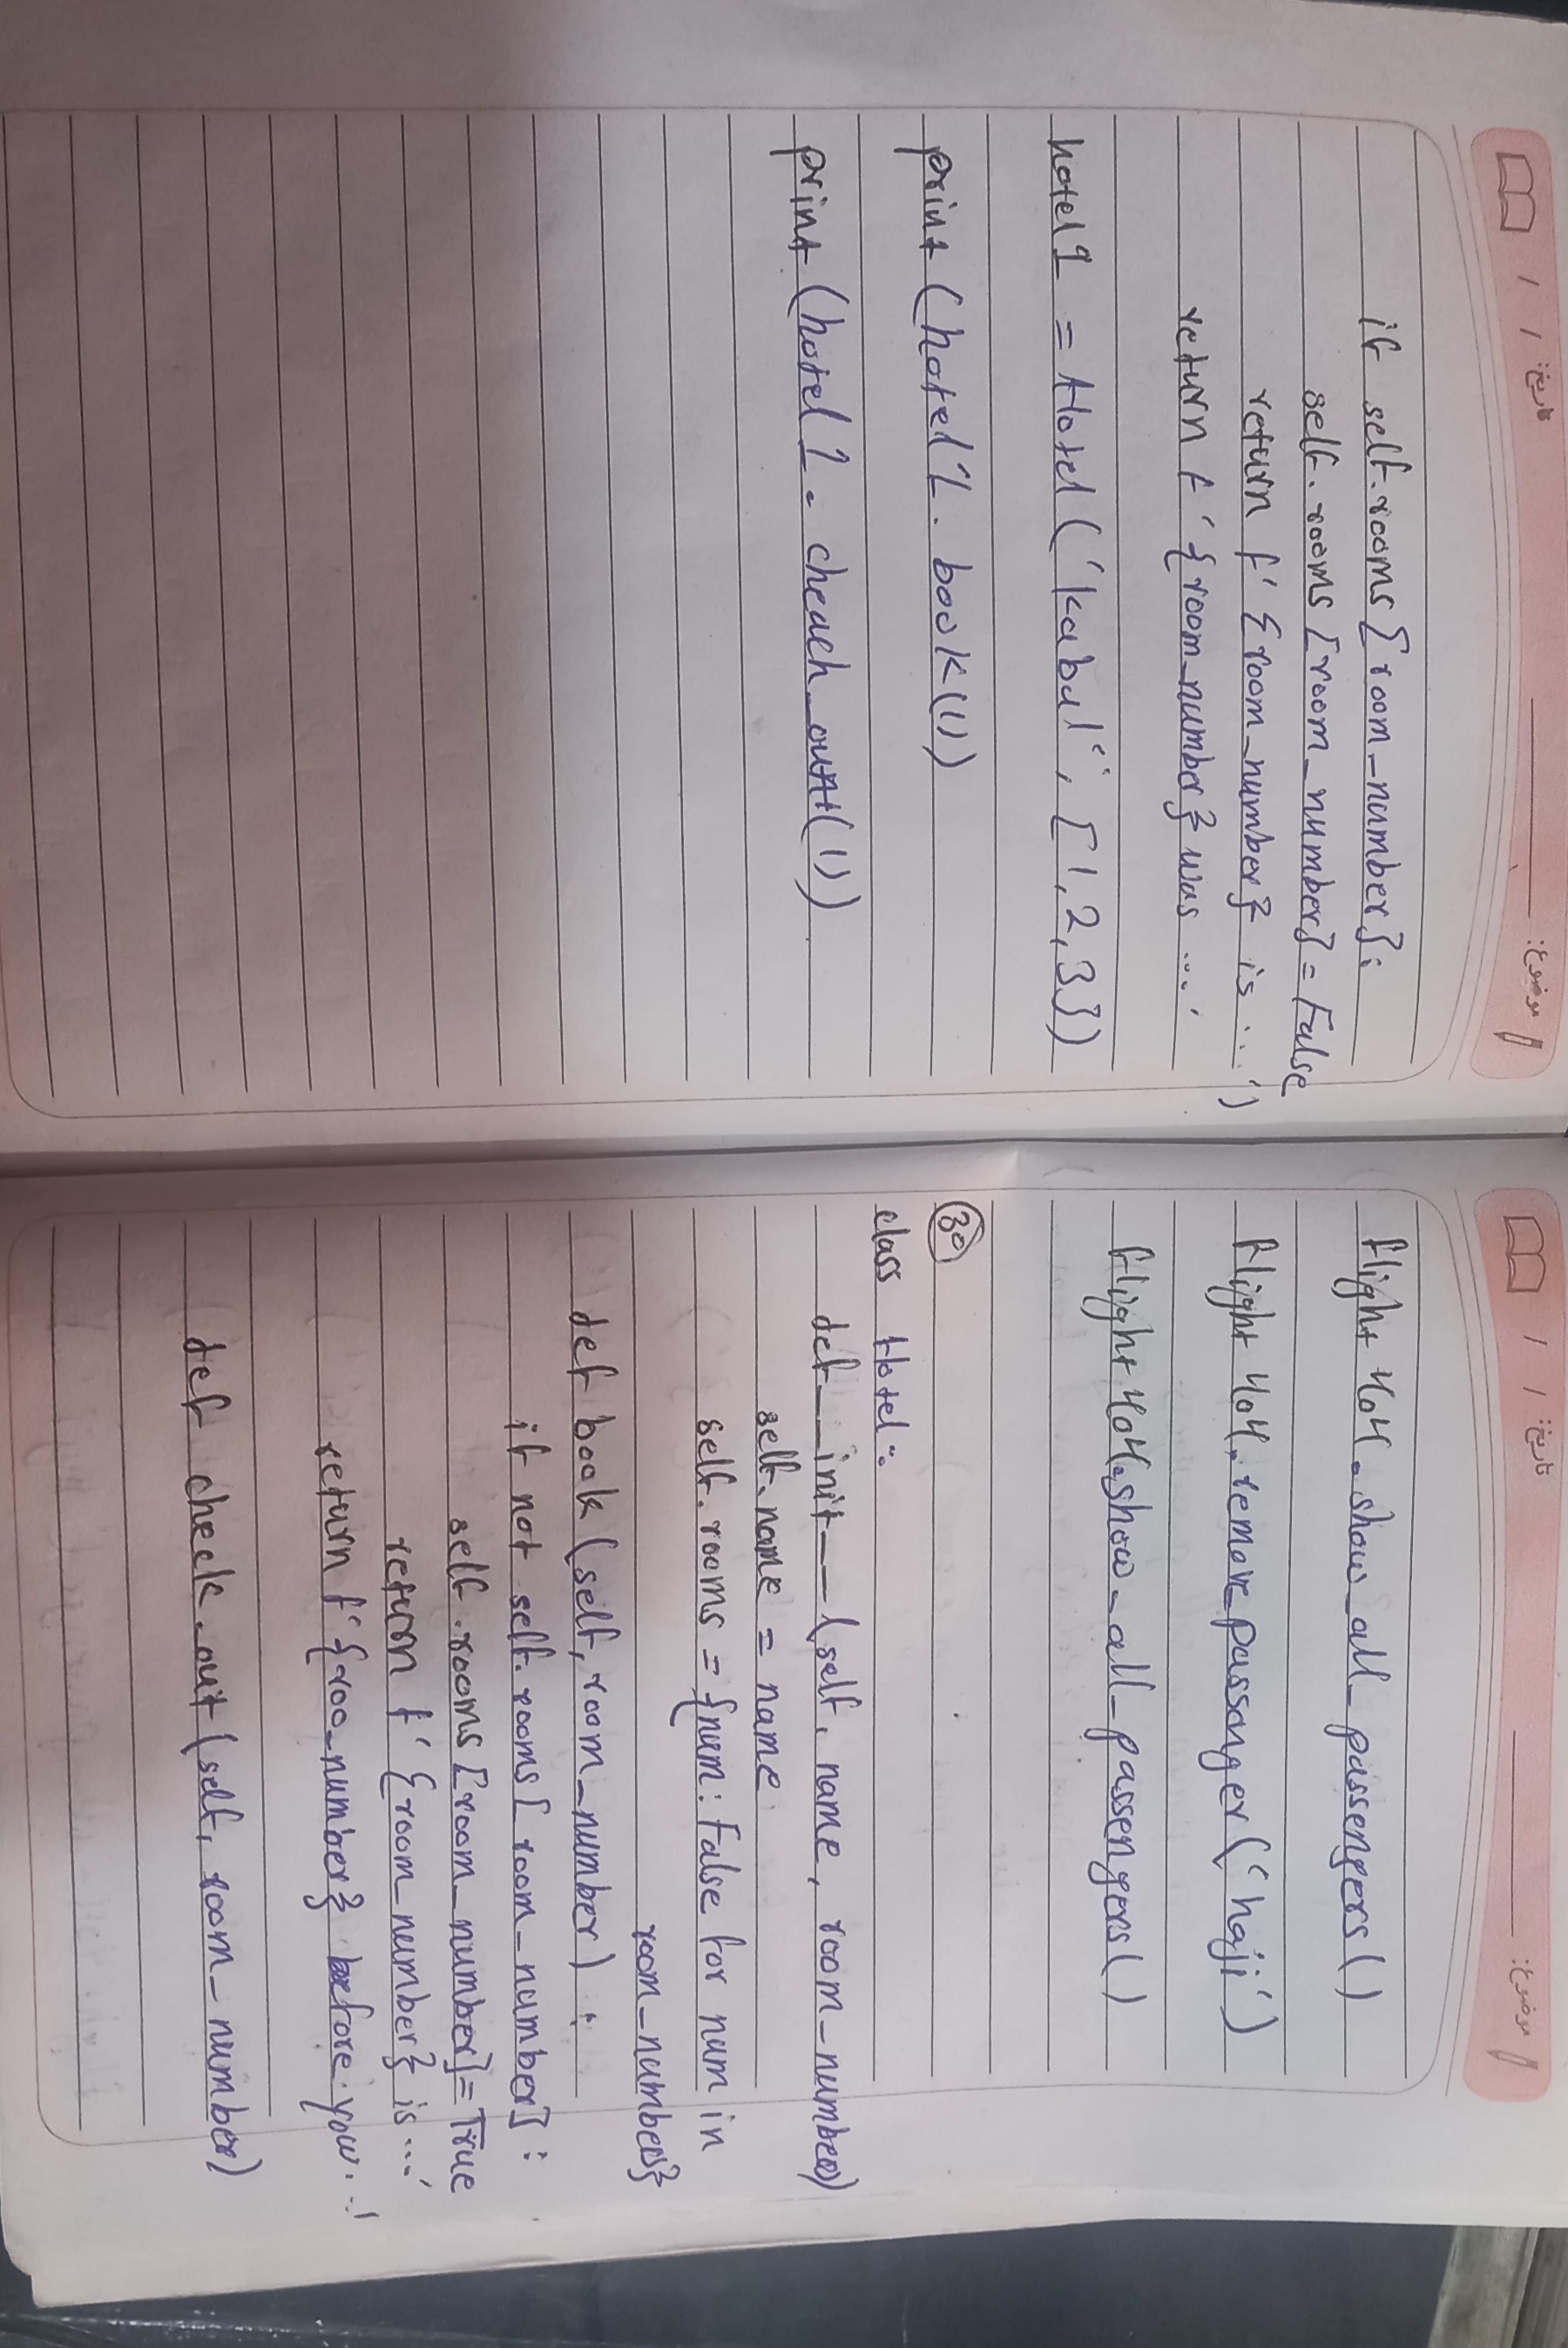 موضوع: تاریخ: / /
flight 404.show_all_passengers()
flight 404.remove_passanger('haji')
flight 404.show_all_passengers()
30
class Hotel:
def __init__(self, name, room_numbers)
self.name = name
self.rooms = {num: False for num in
room_numbers}
def book (self, room_number) :
if not self.rooms[room_number] :
self.rooms[room_number]=True
return f'{room_number} is ...'
return f'{roo_number} before you...'
def check_out (self, room_number)
موضوع: تاریخ: / /
if self.rooms[room_number]:
self.rooms[room_number] = False
return f'{room_number} is ...')
return f'{room_number} was ...'
hotel1 = Hotel('kabul', [1,2,3])
print (hotel1.book(1))
print (hotel1.cheach_out(1))